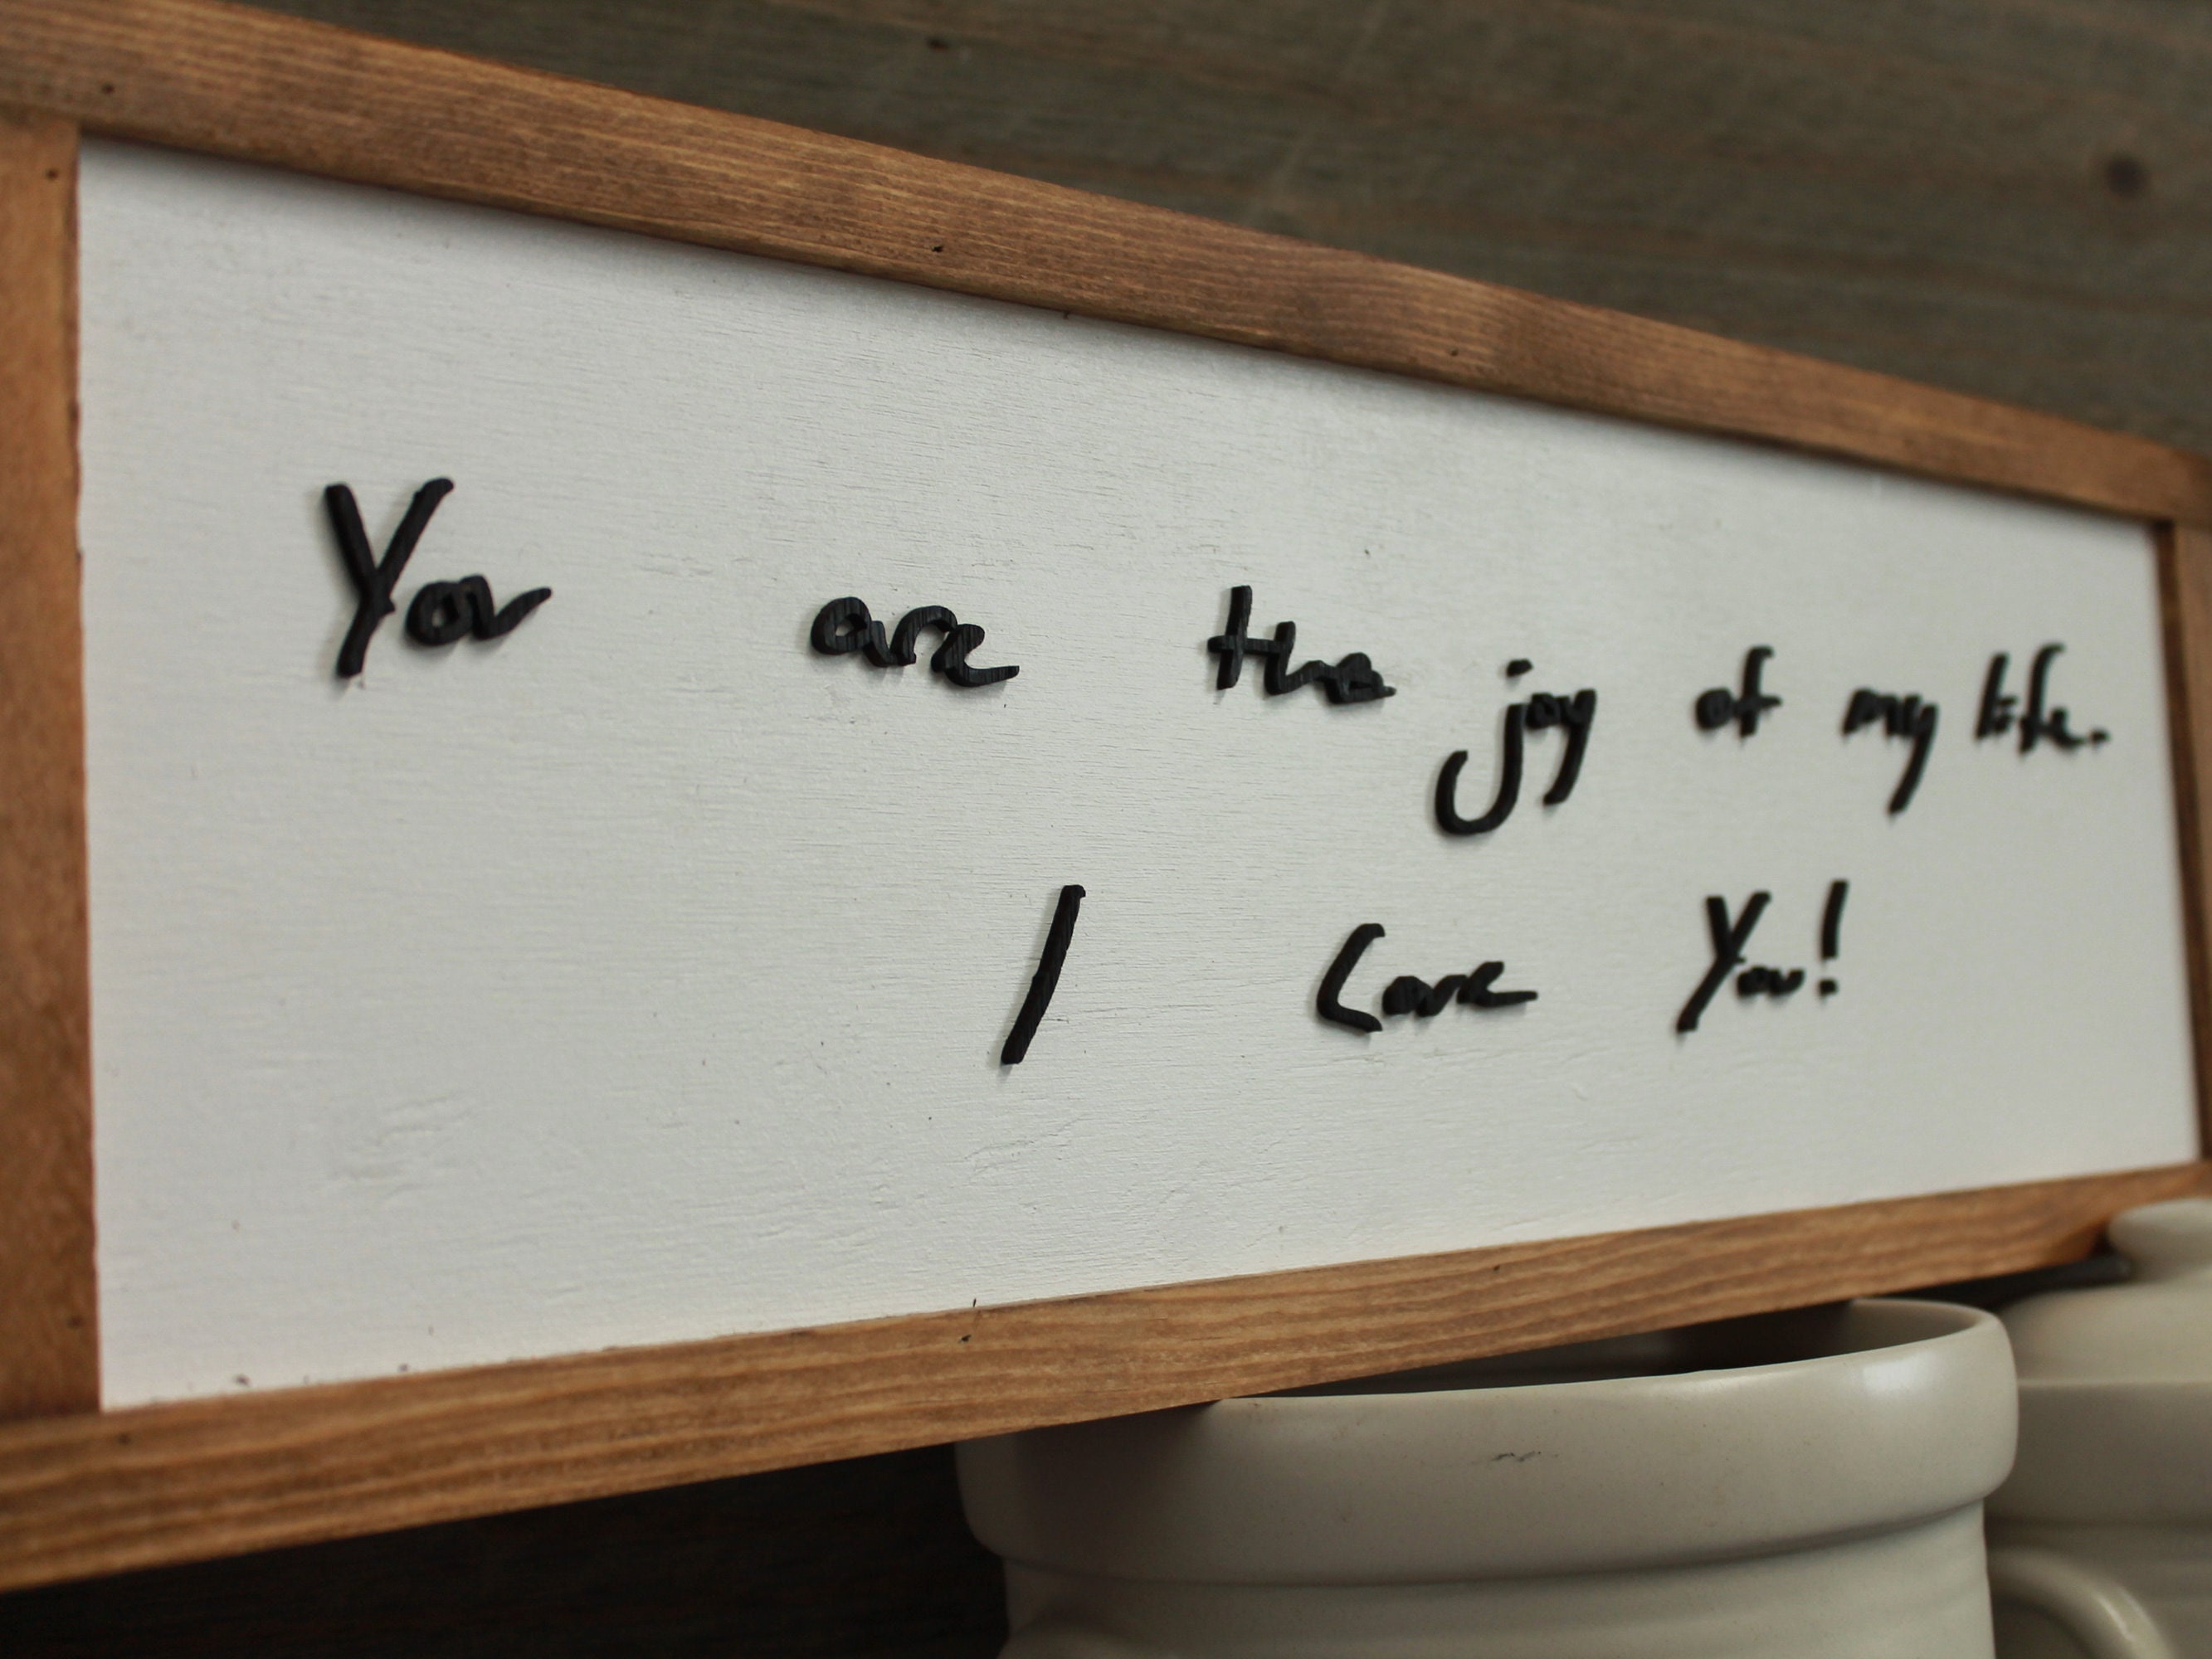 You are the joy of my life.
I Love You!